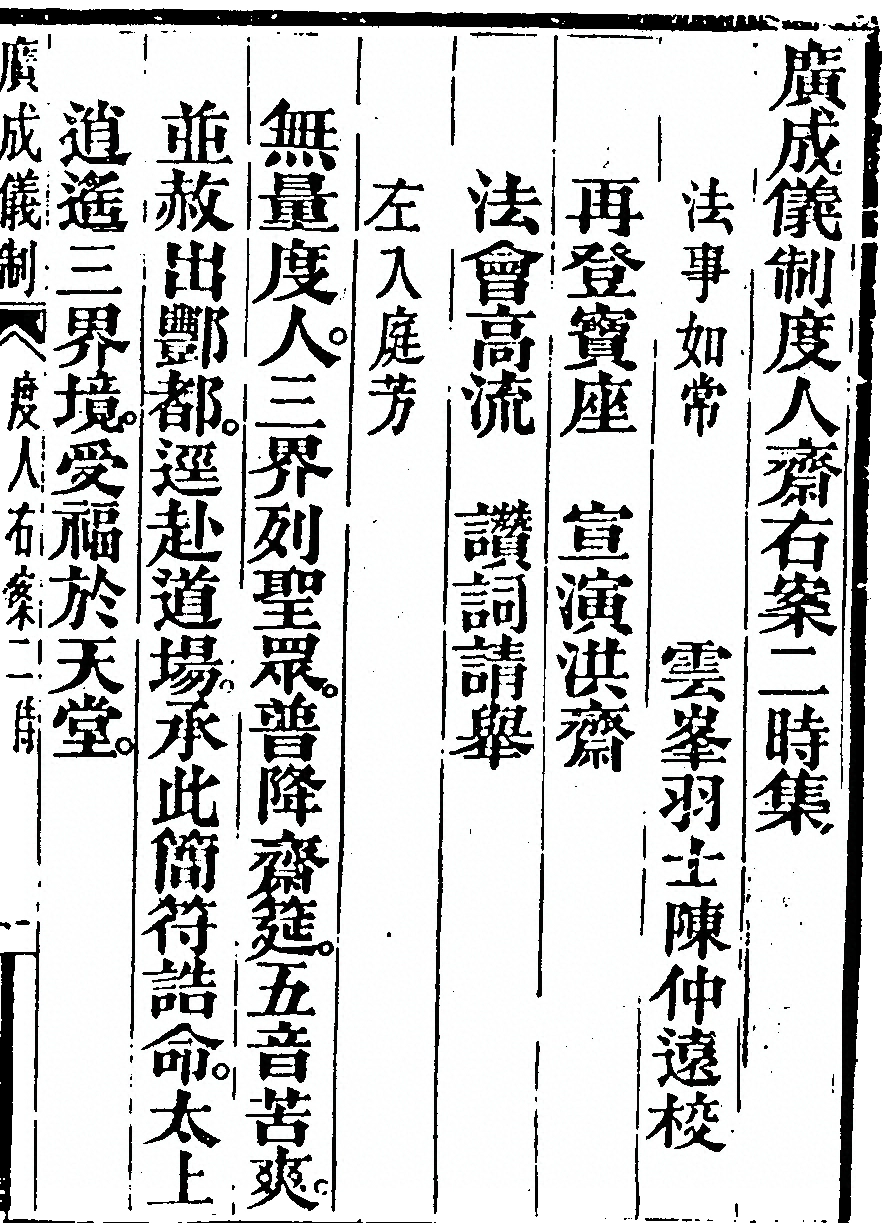 廣成儀制度人齋右案二時集
法事如常　雲峯羽士陳仲遠校
再登寶座　宣演洪齋
法會高流　讚詞請舉
左入庭芳
無量度人。三界列聖眾。普降齋筵。五音苦爽。
並赦出酆都。逕赴道場。承此簡符誥命。太上
逍遙三界境。受福於天堂。
廣成儀制　度人右案二時